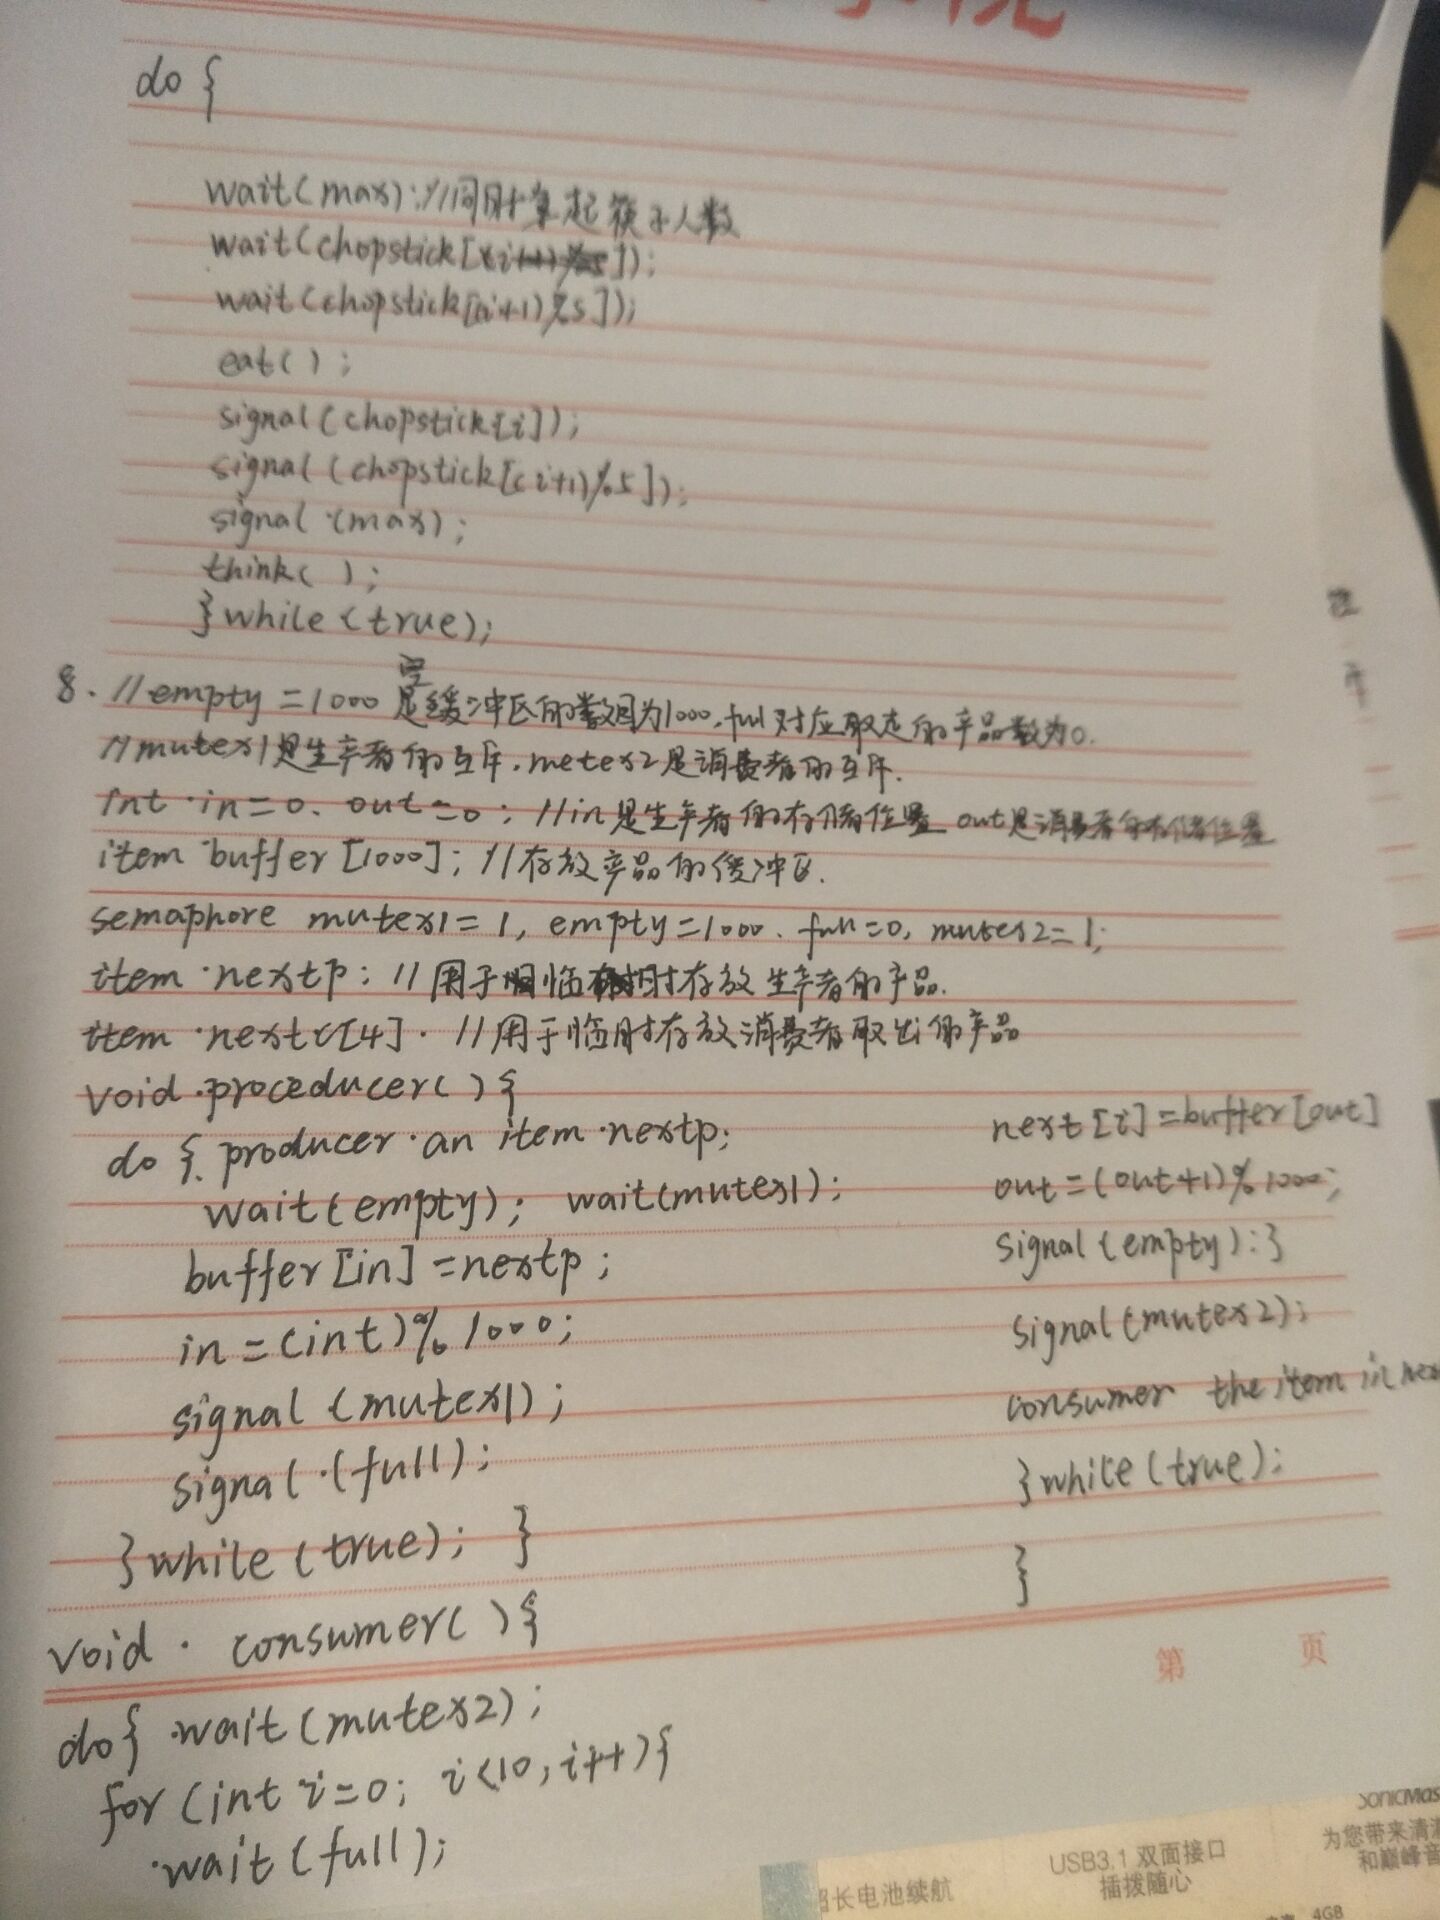 do {
wait(max); //同时拿起筷子人数
wait(chopstick[i]);
wait(chopstick[(i+1)%5]);
eat( );
signal(chopstick[i]);
signal(chopstick[(i+1)%5]);
signal (max);
think( );
}while(true);
空
8. //empty=1000 是缓冲区的数目为1000, full对应取走的产品数为0.
//mutex1是生产者的互斥, metex2是消费者的互斥.
int in=0, out=0; //in是生产者的存储位置 out是消费者的存储位置
item buffer[1000]; //存放产品的缓冲区.
semaphore mutex1=1, empty=1000, full=0, mutex2=1;
item nextp; //用于临时存放生产者的产品.
item nextc[4]. //用于临时存放消费者取出的产品
void proceducer( ) {
do { producer an item nextp;
wait(empty); wait(mutex1);
buffer[in]=nextp;
in=(int)%1000;
signal(mutex1);
signal(full);
}while(true); }
void consumer( ) {
do{ wait(mutex2);
for(int i=0; i<10, i++){
wait(full);
next[i]=buffer[out]
out=(out+1)%1000;
signal(empty); }
signal(mutex2);
consumer the item in
}while(true);
}
第 页
超长电池续航
USB3.1 双面接口
插拔随心
SonicMas
为您带来清
和巅峰音
4GB